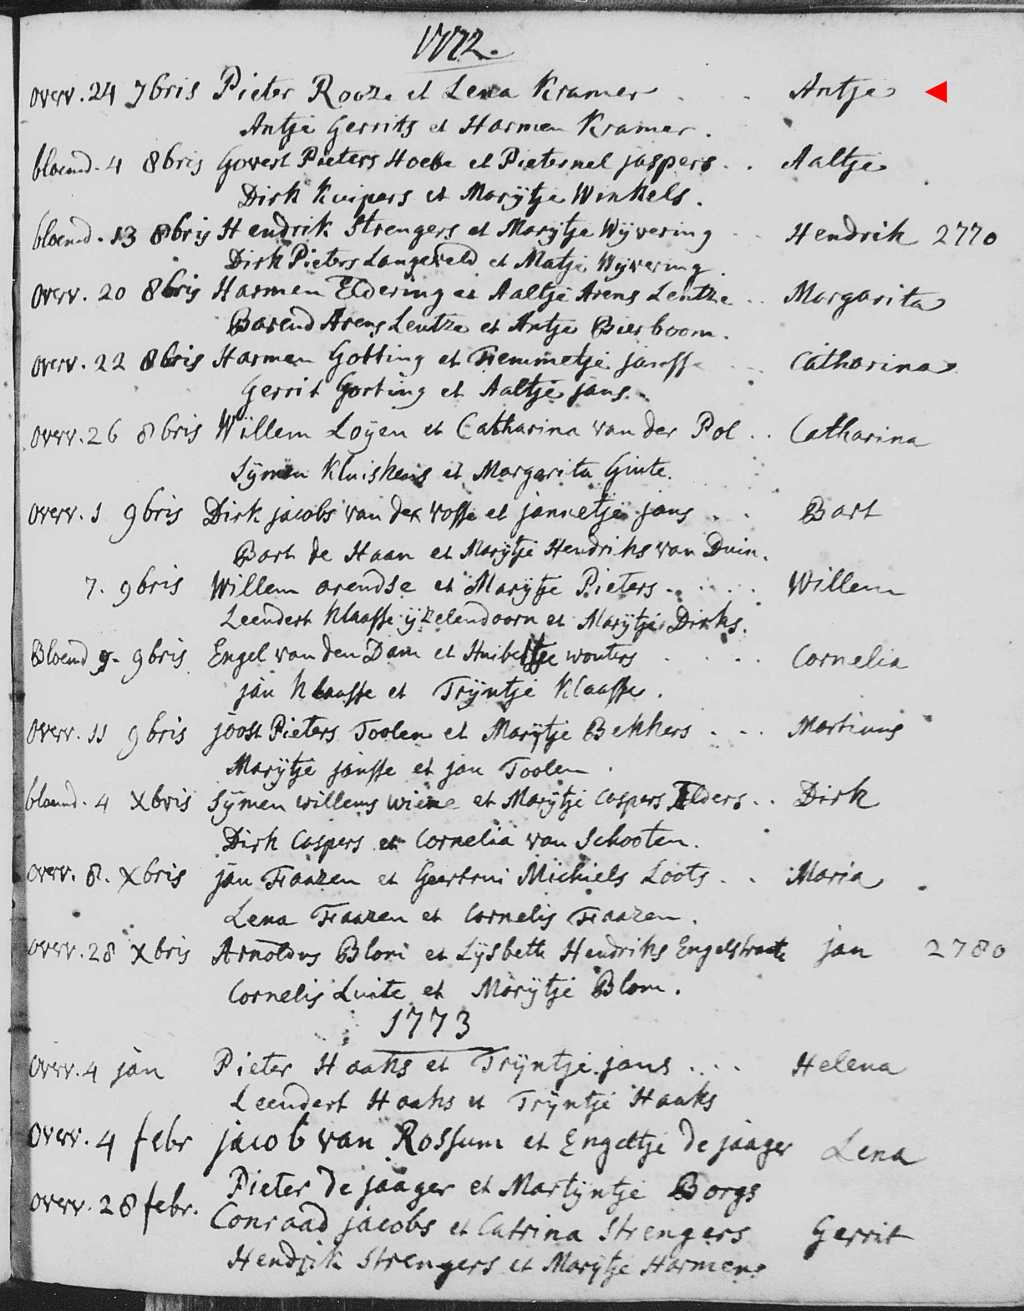 1772.
overv. 24 7bris Pieter Rooze et Lena Kramer . . . Antje
Antje Gerrits et Harmen Kramer.
bloemd. 4 8bris Govert Pieters Hoebe et Pieternel jaspers . . Aaltje
Dirk Kuipers et Marijtje Winkels.
bloemd. 13 8bris Hendrik Strengers et Marijtje Wijvering . . Hendrik 2770
Dirk Pieters Langeveld et Matje Wijvering.
overv. 20 8bris Harmen Eldering et Aaltje Arens Lentze . . Margarita
Barend Arens Lentze et Antje Bierboom.
overv. 22 8bris Harmen Gotting et Femmetje jansse . . . Catharina
Gerrit Gorting et Aaltje jans.
overv. 26 8bris Willem Loyen et Catharina van der Pol . . Catharina
Sijmen Kluiskens et Margarita Giute.
overv. 1 9bris Dirk jacobs van der vosse et jannetje jans . . . Bart
Bart de Haan et Marijtje Hendriks van Duin.
7. 9bris Willem arendse et Marijtje Pieters . . . . . Willem
Leendert Klaasse ijzelendoorn et Marijtje Dirks.
Bloemd 9. 9bris Engel van den Dam et Huibertje wouters . . . . . Cornelia
jan Klaasse et Trijntje Klaasse.
overv. 11 9bris joost Pieters Toolen et Marijtje Bekkers . . . Martinus
Marijtje jansse et jan Toolen.
bloemd. 4 Xbris Sijmen willems wiene et Marijtje Caspers Elders . . Dirk
Dirk Caspers et Cornelia van Schooten.
overv. 8. Xbris jan Fraazen et Geertrui Michiels Loots . . Maria
Lena Fraazen et Cornelis Fraazen.
overv. 28 Xbris Arnoldus Blom et Lijsbeth Hendriks Engelstraate jan 2780
Cornelis Luite et Marijtje Blom.
1773
overv. 4 jan Pieter Haaks et Trijntje jans . . . . Helena
Leendert Haaks et Trijntje Haaks
overv. 4 febr jacob van Rossum et Engeltje de jaager Lena
Pieter de jaager et Martijntje Borgs
overv. 28 febr. Conraad jacobs et Catrina Strengers Gerrit
Hendrik Strengers et Marijtje Harmens